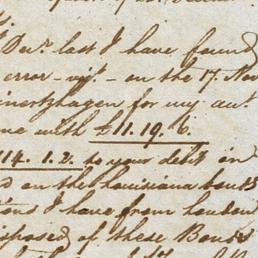 Decr. last I have found
error - vizt. - on the 17. Nov
inertzhagen for my act.
me with £11.19.6.
114.1.2. to your debit in
on the Louisiana bonds
I have from London
isposed of these Bonds